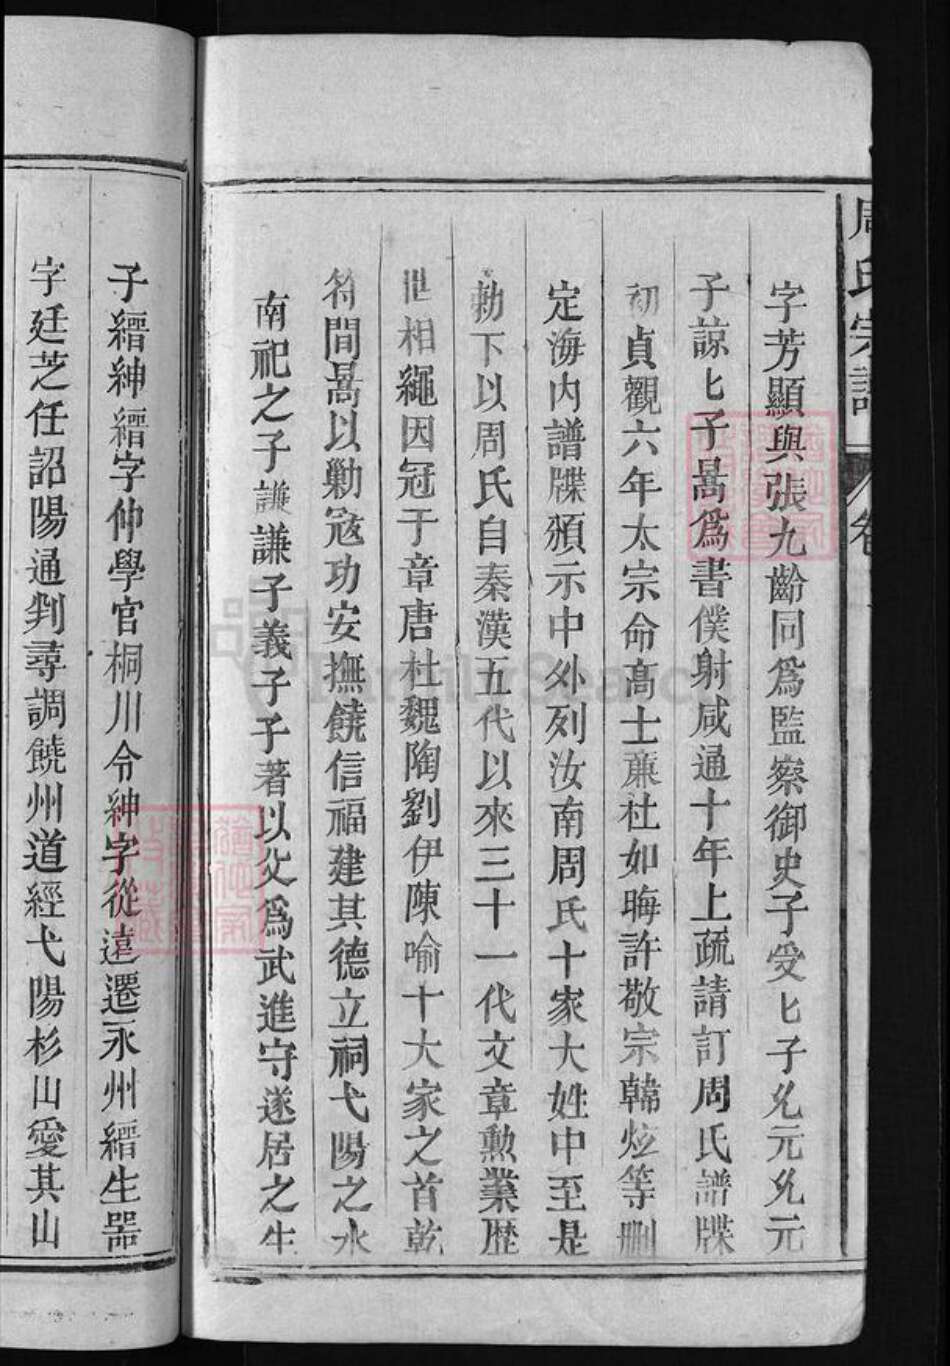 周氏宗譜 卷
字芳顯與張九齡同爲監察御史子受匕子乣元乣元
子諒匕子暠爲書僕射咸通十年上疏請訂周氏譜牒
初貞觀六年太宗命高士廉杜如晦許敬宗韓炫等刪
定海内譜牒頒示中外列汝南周氏十家大姓中至是
勅下以周氏自秦漢五代以來三十一代文章勲業歷
世相繩因冠于章唐杜魏陶劉伊陳喻十大家之首乾
符間暠以勦冦功安撫饒信福建其德立祠弋陽之水
南祀之子謙謙子義子子著以父爲武進守遂居之生
子縉紳縉字仲學官桐川令紳字從遠遷永州縉生器
字廷芝任詔陽通判尋調饒州道經弋陽杉山愛其山
FamilySearch